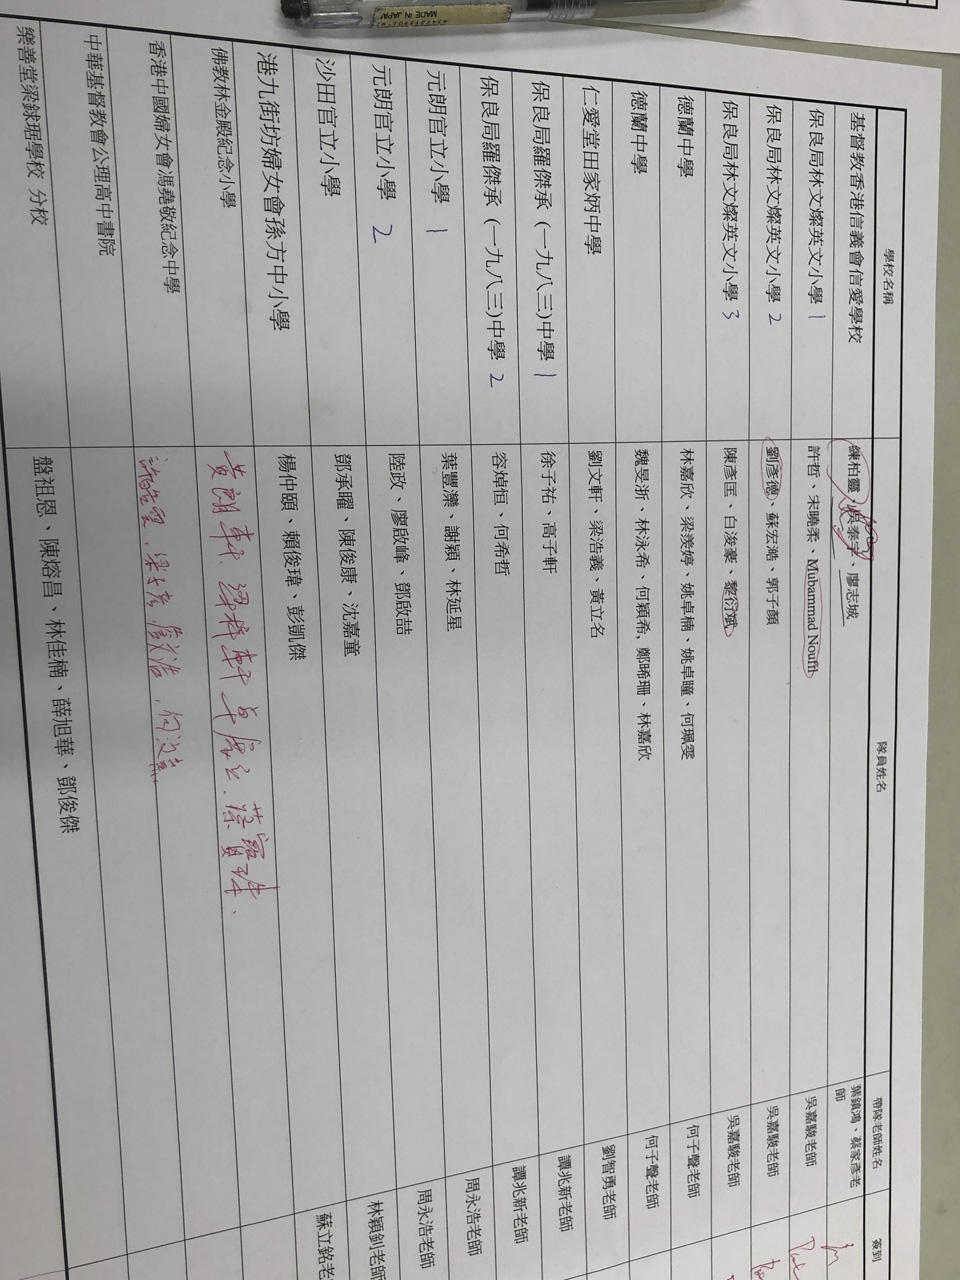 MADE IN JAPAN
學校名稱 隊員姓名 帶隊老師姓名 簽到
基督教香港信義會信愛學校 練柏靈、吳泰宇、廖志城 葉鎮鴻、蔡家彥老師
保良局林文燦英文小學 1 許哲、宋曉柔、Muhammad Noufil 吳嘉駿老師
保良局林文燦英文小學 2 劉彥德、蘇宏澔、郭子顏 吳嘉駿老師
保良局林文燦英文小學 3 陳彥匡、白浚豪、黎衍斌 吳嘉駿老師
德蘭中學 林嘉欣、梁羨婷、姚卓楠、姚卓曈、何珮雯 何子聲老師
德蘭中學 魏旻浙、林泳希、何穎希, 鄭晞珊、林嘉欣 何子聲老師
仁愛堂田家炳中學 劉文軒、梁浩義、黃立名 劉智勇老師
保良局羅傑承 (一九八三)中學 1 徐子祐、高子軒 譚兆新老師
保良局羅傑承 (一九八三)中學 2 容焯恒、何希哲 譚兆新老師
元朗官立小學 1 葉豐灤、謝穎、林延星 周永浩老師
元朗官立小學 2 陸政、廖啟峰、鄧啟喆 周永浩老師
沙田官立小學 鄧承曜、陳俊康、沈嘉童 林穎釗老師
港九街坊婦女會孫方中小學 楊仲頤、賴俊瑋、彭凱傑 蘇立銘老
佛教林金殿紀念小學
香港中國婦女會馮堯敬紀念中學
中華基督教會公理高中書院
樂善堂梁銶琚學校 分校 盤祖恩、陳熔昌、林佳楠、薛旭華、鄧俊傑